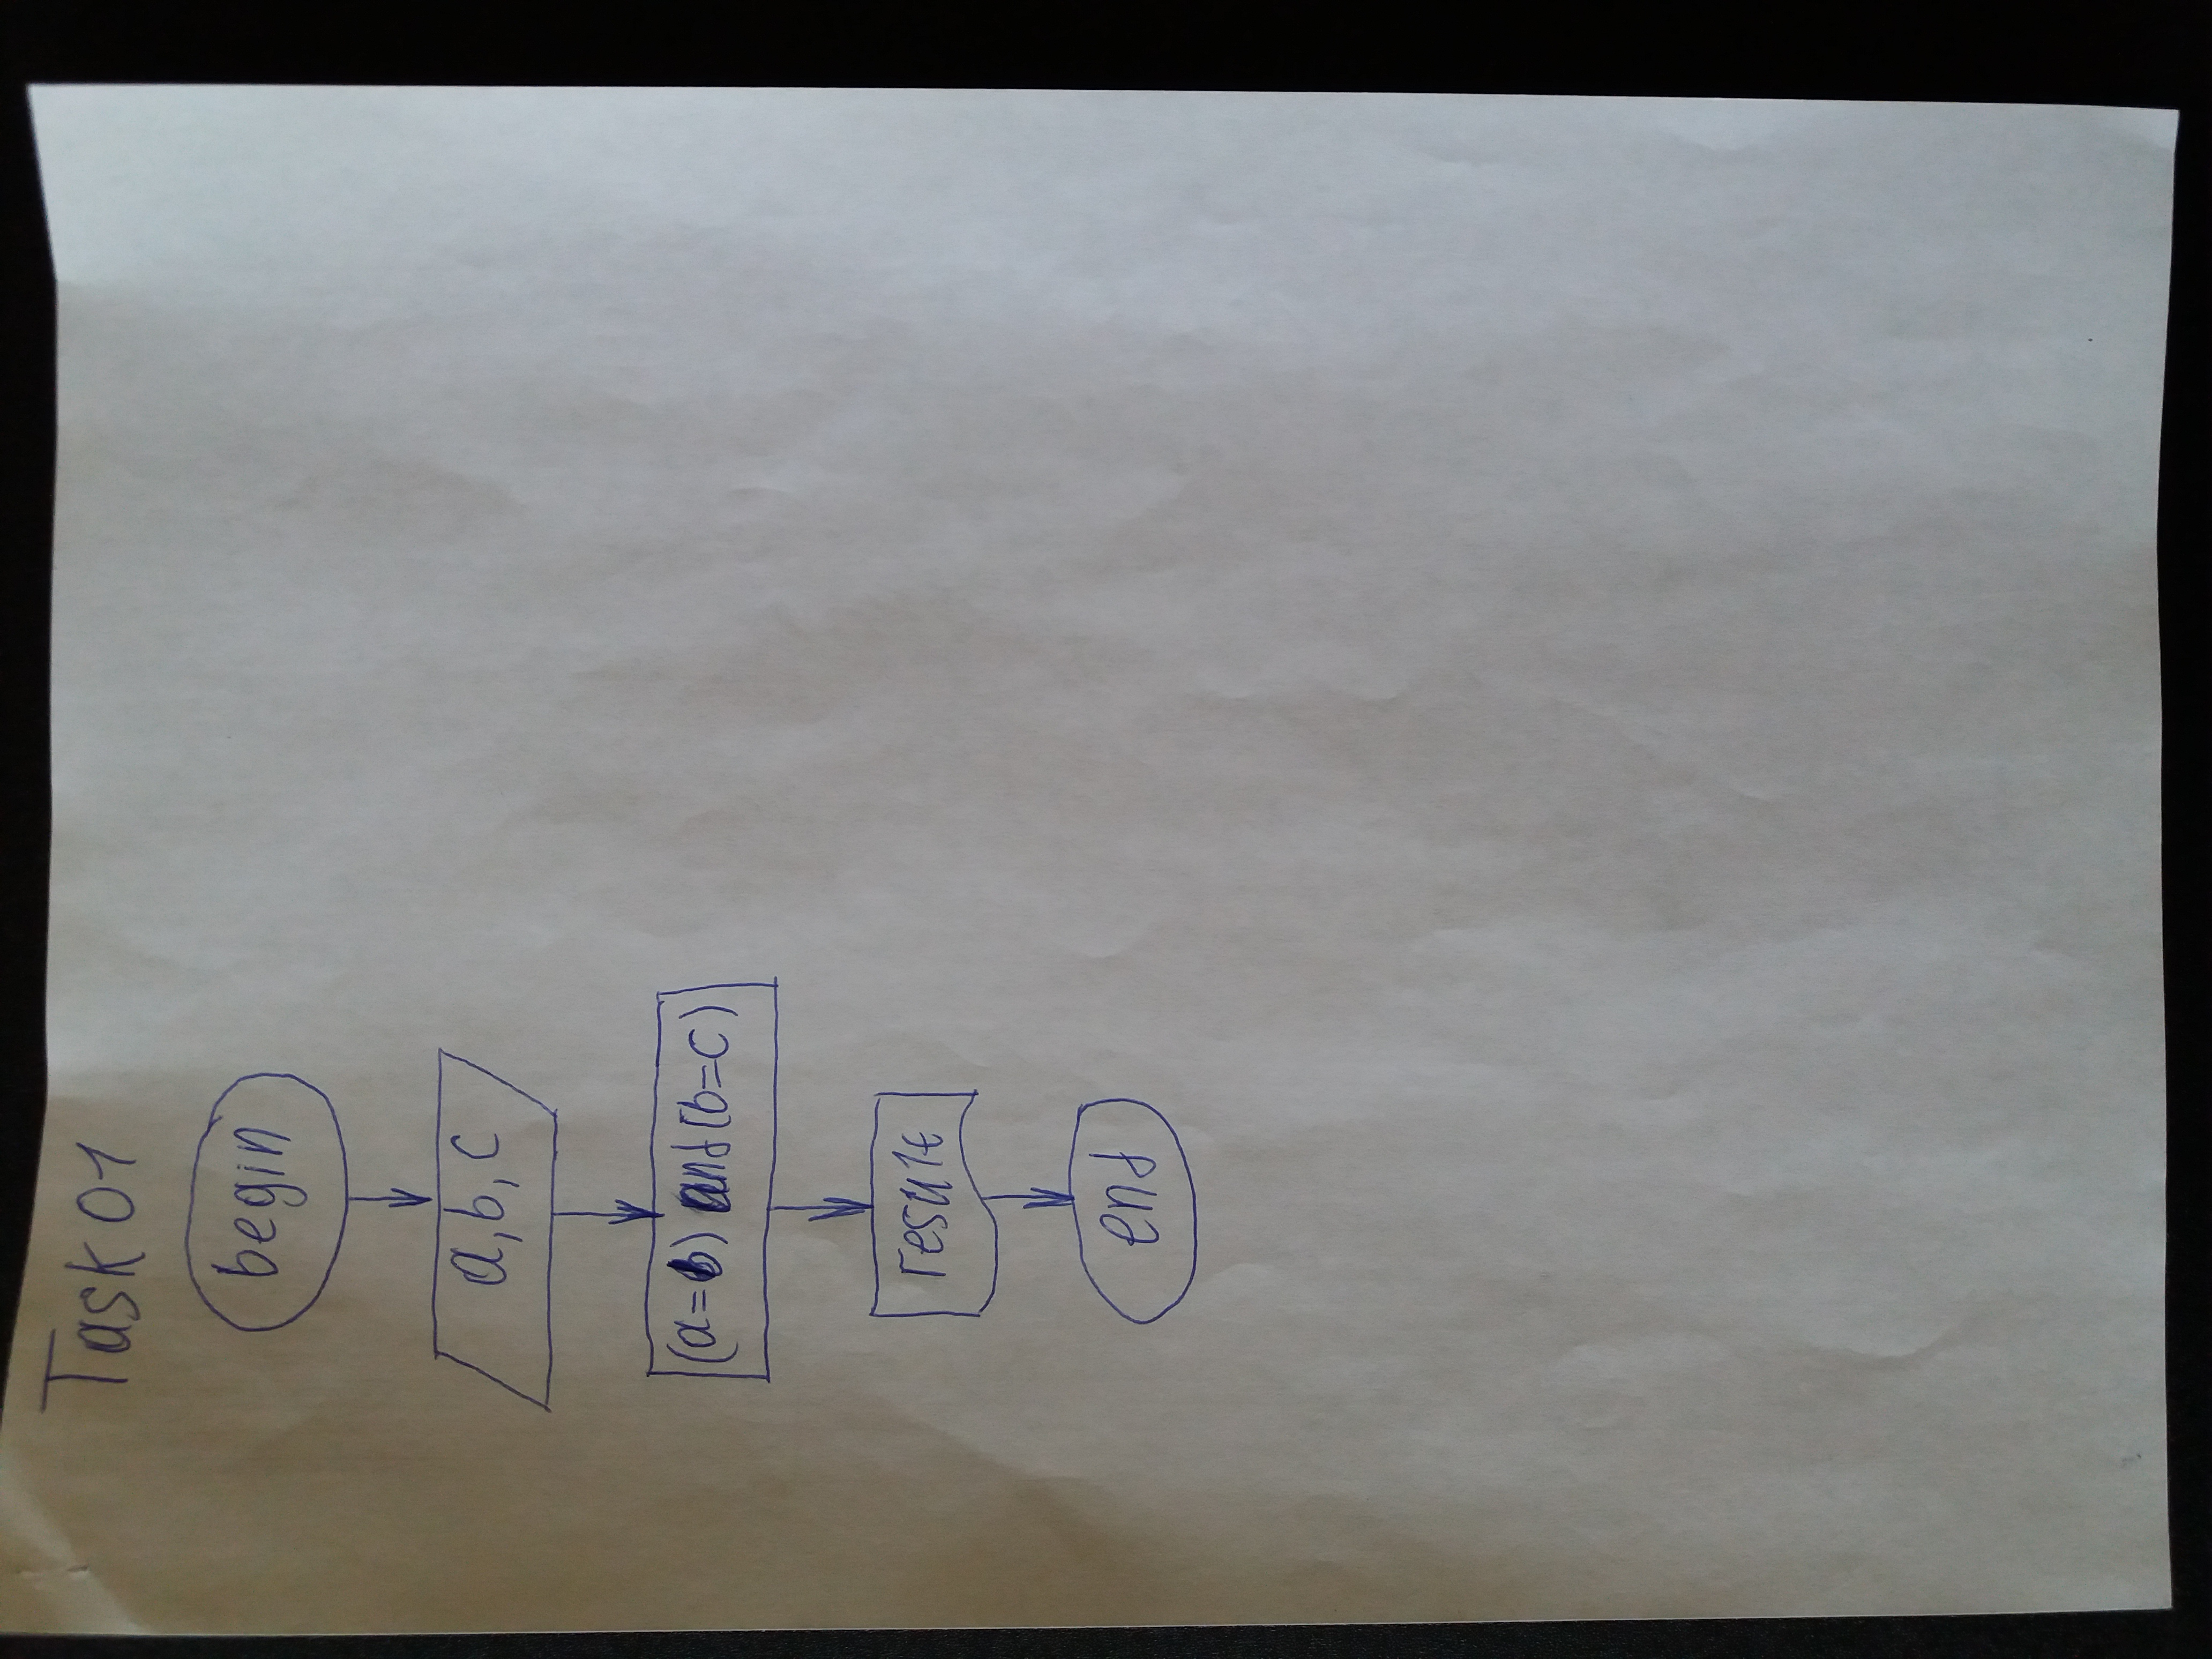 Task 01
begin
a, b, c
(a=b) and (b=c)
result
end